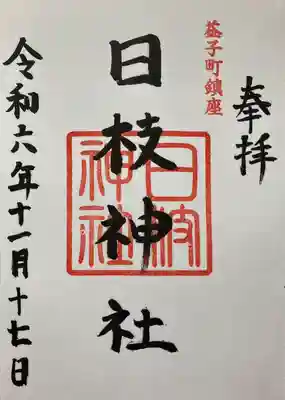 奉拝
益子町鎮座
日枝神社
日枝神社
令和六年十一月十七日